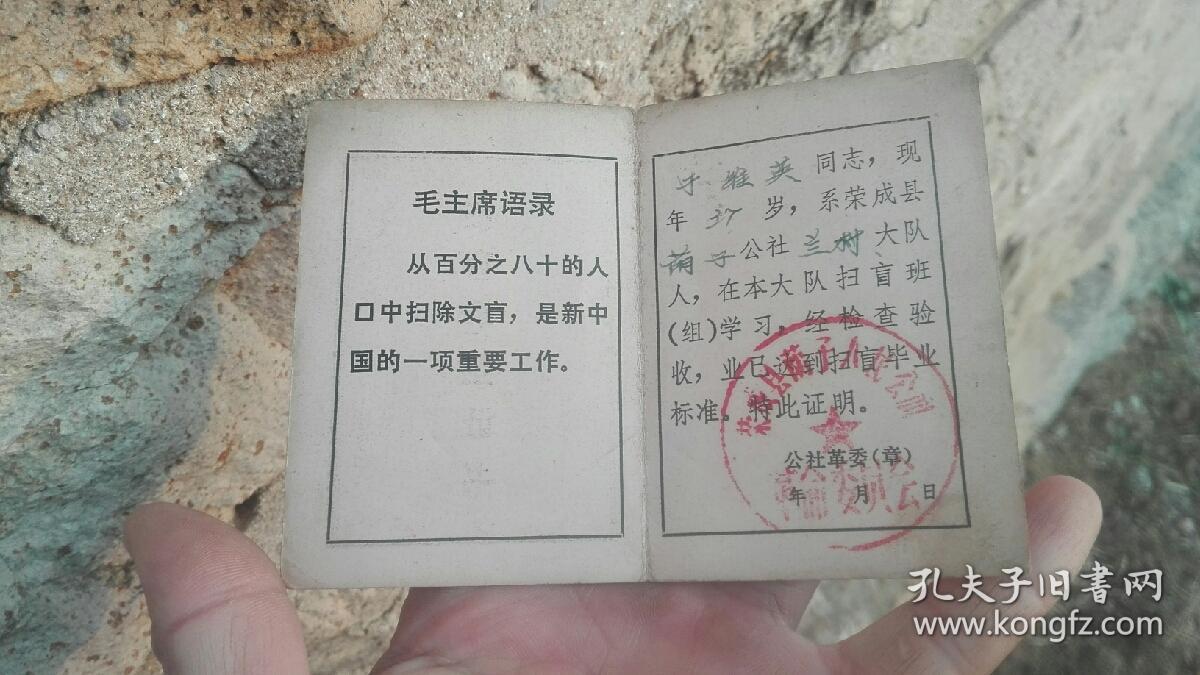 毛主席语录
从百分之八十的人
口中扫除文盲，是新中
国的一项重要工作。
于维英同志，现
年 37 岁，系荣成县
荫子公社兰村大队
人，在本大队扫盲班
(组)学习，经检查验
收，业已达到扫盲毕业
标准。特此证明。
公社革委(章)
年 月 日
荣成县荫子人民公社
革命委员会
孔夫子旧書网
www.kongfz.com